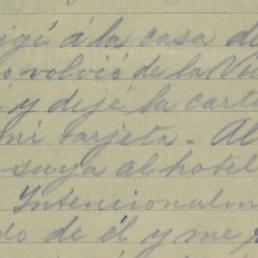 igí á la casa de
volvió de la
y dejé la carta
mi tarjeta. Al
suya al hotel
Intencionalm
do de él y me